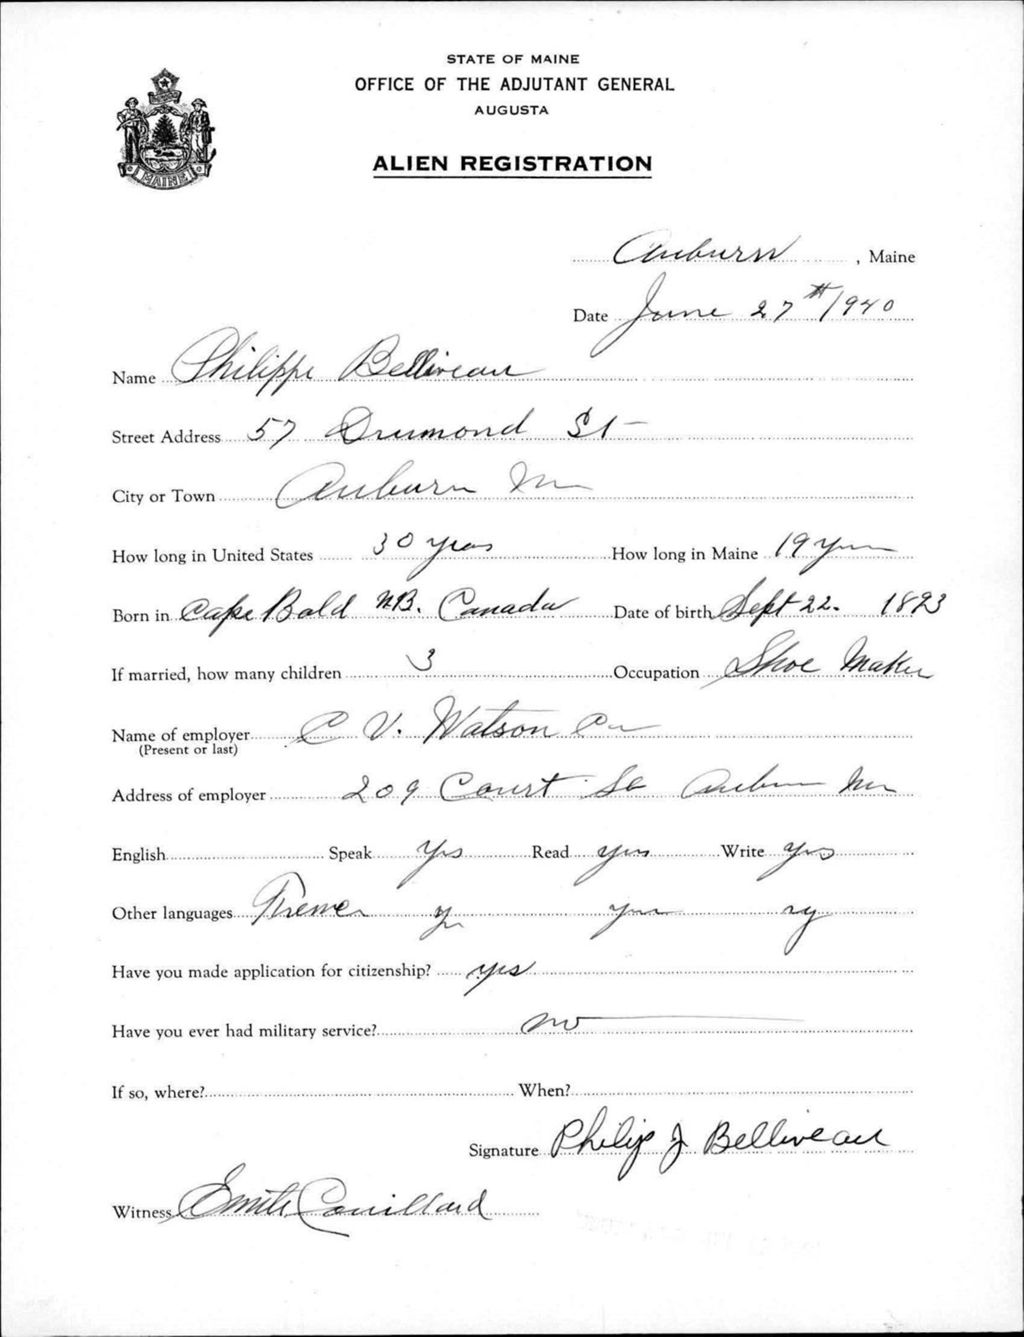 STATE OF MAINE
OFFICE OF THE ADJUTANT GENERAL
AUGUSTA
MAINE
ALIEN REGISTRATION
Auburn, Maine
Date June 27th 1940
Name Philippe Belliveau
Street Address 57 Drumond St
City or Town Auburn Me
How long in United States 30 years How long in Maine 19 years
Born in Cape Bald N.B. Canada Date of birth Sept 22. 1893
If married, how many children 3 Occupation Shoe Maker
Name of employer C V. Watson Co
(Present or last)
Address of employer 209 Court St Auburn Me
English Speak Yes Read yes Write yes
Other languages
Have you made application for citizenship? yes
Have you ever had military service? no
If so, where? When?
Signature Philip J Belliveau
Witness Emile Couillard